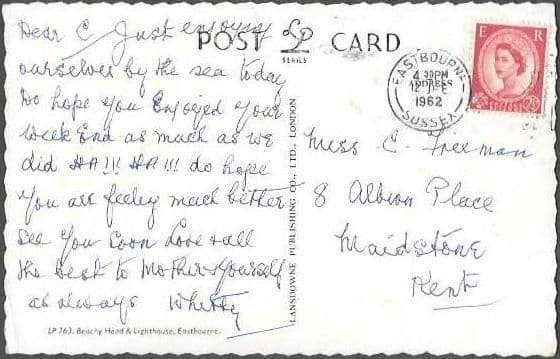 Dear C Just enjoying
ourselves by the sea today
Do hope you Enjoyed your
Week End as much as we
did HA!!! HA!!! do hope
You are feeling much better
See You Soon Love & all
the best to Mother & Yourself
as always Whitty
LP 763. Beachy Head & Lighthouse, Eastbourne.
POST LP CARD
SERIES
LANSDOWNE PUBLISHING CO., LTD., LONDON
EASTBOURNE
4 30PM
ADDRESS
1962
SUSSEX
E R
Miss C. Freeman
8 Albion Place
Maidstone
Kent